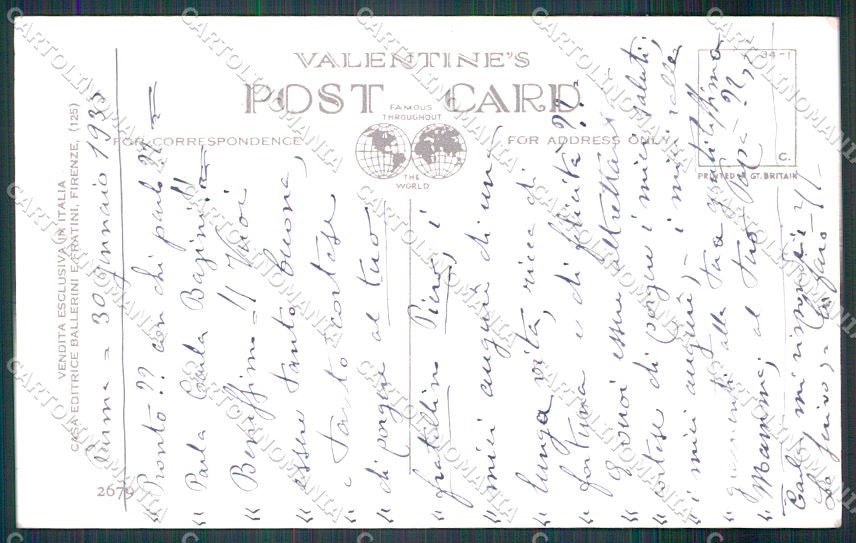 VALENTINE'S
POST CARD
FAMOUS
THROUGHOUT
THE
WORLD
FOR CORRESPONDENCE
FOR ADDRESS ONLY
34-1
C.
PRINTED IN GT. BRITAIN
VENDITA ESCLUSIVA IN ITALIA
CASA EDITRICE BALLERINI E FRATINI, FIRENZE, (125)
2679
30 gennaio 1935
" Pronto?? con chi parlo?? =
" Parla Carla Bazini!!
" Benissimo = !! Vuoi
" essere tanto buona,
" e tanto cortese
" di porgere al tuo
" fratellino Piero, i
" miei auguri di una
" lunga vita, ricca di
" fortuna e di felicità??
E vuoi essere altrettanto
" cortese di porgere i miei saluti,
" i miei auguri, - i miei
" alla tua gentilissima
" Mamma, al tuo Papà = ??,,
Carla mi risponde:
Lo farò
CARTOLINOMANIA